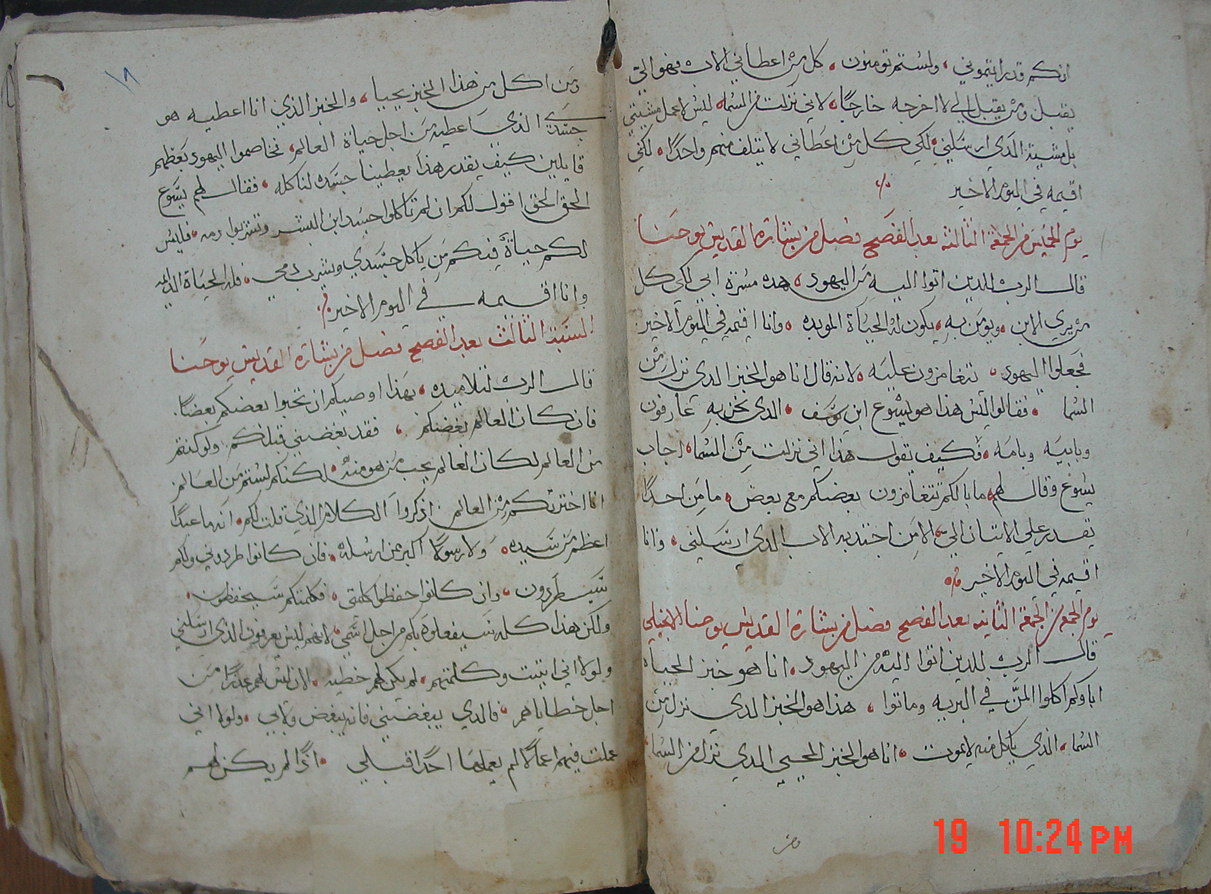 انكم قد رايتموني ولستم تومنون كل من اعطاني الاب فهو الي
يقبل ومن يقبل الي لا اخرجه خارجًا لاني نزلت من السما ليس لاعمل مشيتي
بل مشية الذي ارسلني لكي كل من اعطاني لا يتلف منهم واحدًا لكني
اقيمه في اليوم الاخير
يوم الخميس من الجمعة الثالثه بعد الفصح فصل من بشارة القديس يوحنا
قال الرب للذين اتوا اليه من اليهود هذه مسرة ابي لكي كل
من يري الابن ويومن به يكون له الحياة الموبده وانا اقيمه في اليوم الاخير
فجعلوا اليهود تتغامزون عليه لانه قال انا هو الخبز الذي نزل من
السما فقالوا ليس هذا هو يشوع ابن يوسف الذي نحن به عارفون
وبابيه وبامه فكيف يقول هذا اني نزلت من السما اجاب
يشوع وقال لهم ما بالكم تتغامزون بعضكم مع بعض ما من احدًا
يقدر علي الاتيان الي الا من اجتذبه الاب الذي ارسلني وانا
اقيمه في اليوم الاخير
يوم الجمعه من الجمعة الثانيه بعد الفصح فصل من بشارة القديس يوحنا الانجيلي
قال الرب للذين اتوا اليه من اليهود انا هو خبز الحياه
اباوكم اكلوا المن في البريه وماتوا هذا هو الخبز الذي نزل من
السما الذي ياكل منه لا يموت انا هو الخبز المحيي الذي نزل من السما
من
١٨
ومن اكل من هذا الخبز يحيا والخبز الذي انا اعطيه هو
جسدي الذي اعطيه من اجل حياة العالم فخاصموا اليهود بعضهم
قايلين كيف يقدر هذا يعطينا جسده لناكله فقال لهم يشوع
الحق الحق اقول لكم ان لم تاكلوا جسد ابن البشر وتشربوا دمه فليس
لكم حياة فيكم من ياكل جسدي ويشرب دمي فله الحياة الدايمه
وانا اقيمه في اليوم الاخير
السبت الثالث بعد الفصح فصل من بشارة القديس يوحنا
قال الرب لتلاميذه بهذا اوصيكم ان تحبوا بعضكم بعضًا
فان كان العالم يبغضكم فقد بغضني قبلكم ولو كنتم
من العالم لكان العالم يحب من هو منه لكنكم لستم من العالم
انا اخترتكم من العالم اذكروا الكلام الذي قلت لكم انه ما عبدًا
اعظم من سيده ولا رسولًا اكبر من ارسله فان كانوا طردوني ولكم
سيطردون وان كانوا حفظوا كلمتي فكلمتكم سيحفظون
ولكن هذا كله سيفعلوه بكم من اجل اسمي لانهم ليس يعرفون الذي ارسلني
ولولا اني اتيت وكلمتهم لم يكن لهم خطيه الان ليس لهم عذرًا من
اجل خطاياهم فالذي يبغضني فانه يبغض ولابي ولولا اني
عملت فيهم اعمالًا لم يعملها احدًا قبلي اذًا لم يكن لهم
19 10:24 PM